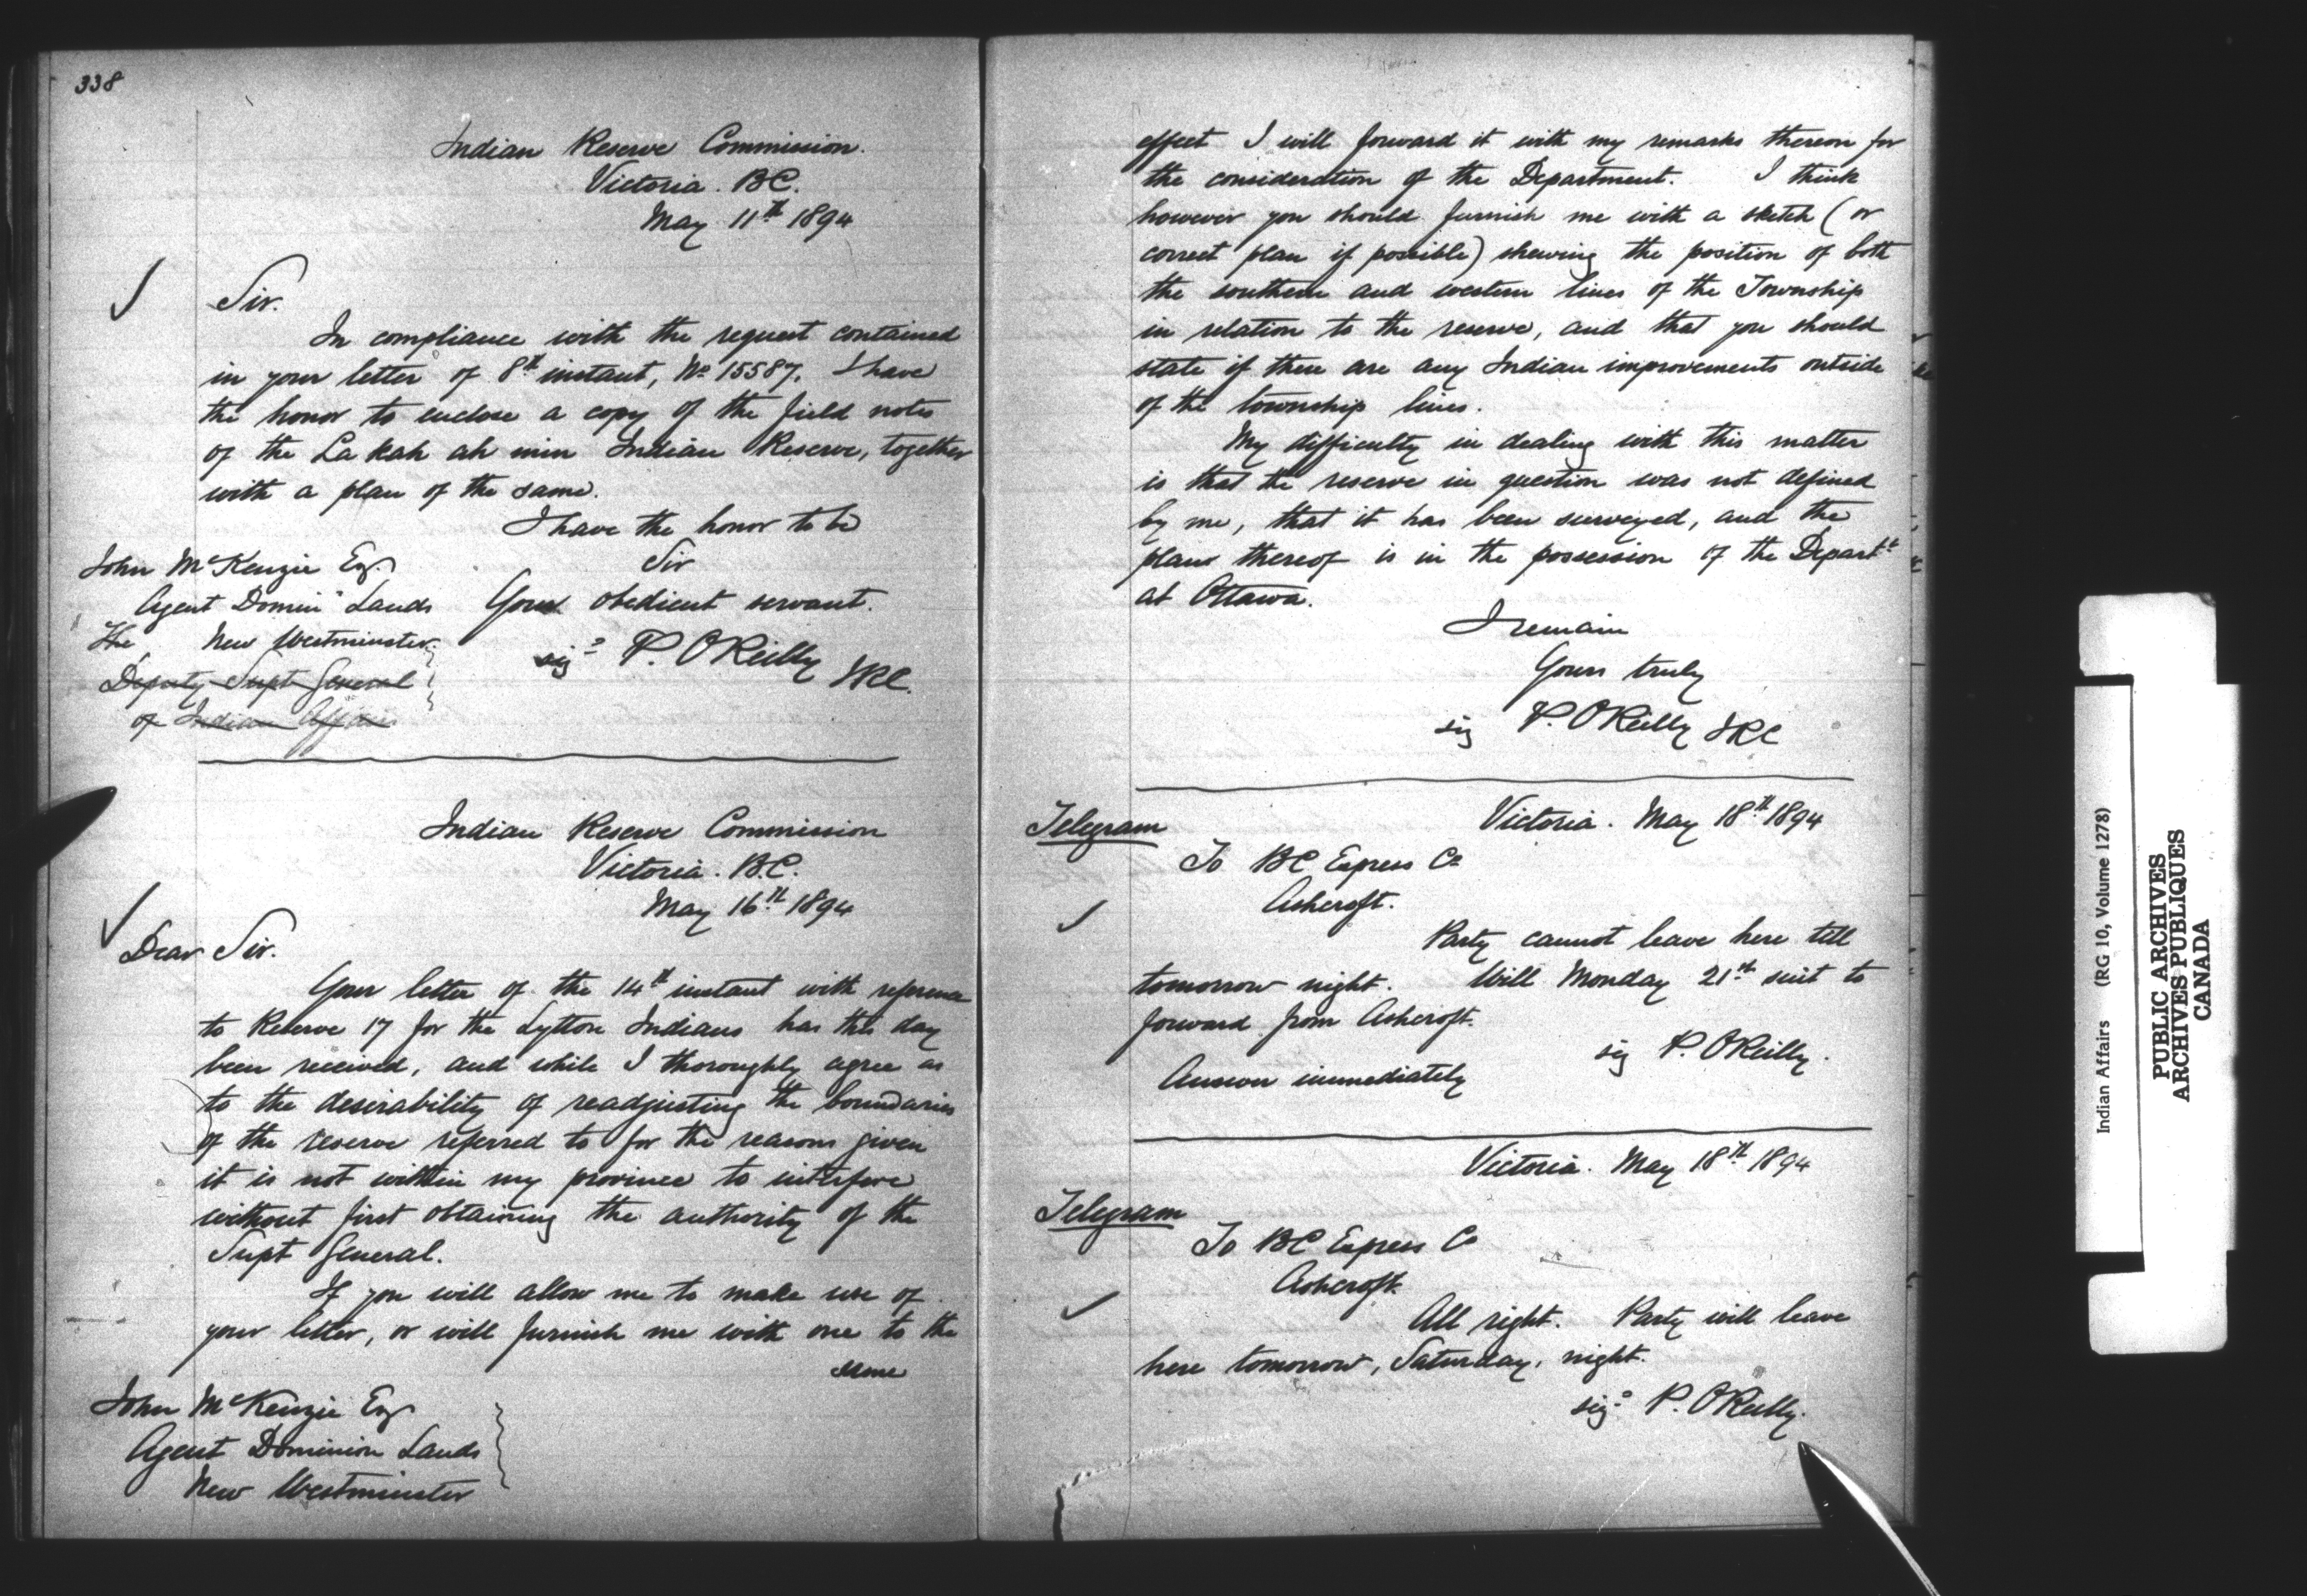 338
Indian Reserve Commission.
Victoria. B.C.
May 11th 1894
Sir.
In compliance with the request contained
in your letter of 8th instant, No 15587. I have
the honor to enclose a copy of the field notes
of the La kah ah min Indian Reserve, together
with a plan of the same.
I have the honor to be
Sir
Your obedient servant.
sigd P. O'Reilly
IRC.
John McKenzie Esq.
Agent Domin'n Lands
New Westminster.
The
Deputy Supt General
of Indian Affairs
Indian Reserve Commission
Victoria. B.C.
May 16th 1894
Dear Sir.
Your letter of the 14th instant with reference
to Reserve 17 for the Lytton Indians has this day
been received, and while I thoroughly agree as
to the desirability of readjusting the boundaries
of the reserve referred to for the reasons given
it is not within my province to interfere
without first obtaining the authority of the
Supt General.
If you will allow me to make use of
your letter, or will furnish me with one to the
same
John McKenzie Esq
Agent Dominion Lands
New Westminster
effect I will forward it with my remarks thereon for
the consideration of the Department. I think
however you should furnish me with a sketch (or
correct plan if possible) shewing the position of both
the southern and western lines of the Township
in relation to the reserve, and that you should
state if there are any Indian improvements outside
of the township lines.
My difficulty in dealing with this matter
is that the reserve in question was not defined
by me, that it has been surveyed, and the
plan thereof is in the possession of the Departt
at Ottawa.
I remain
Yours truly
sig P. O'Reilly IRC
Telegram
Victoria. May 18th 1894
To BC Express Co
Ashcroft.
Party cannot leave here till
tomorrow night. Will Monday 21st suit to
forward from Ashcroft.
sig P. O'Reilly.
Answer immediately
Victoria. May 18th 1894
Telegram
To BC Express Co
Ashcroft.
All right. Party will leave
here tomorrow, Saturday, night.
sigd P. O'Reilly.
Indian Affairs (RG 10, Volume 1278)
PUBLIC ARCHIVES
ARCHIVES PUBLIQUES
CANADA